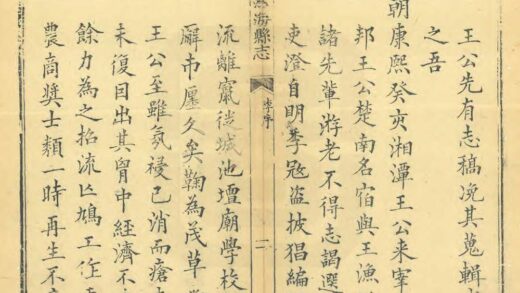 王公先有志稿凂其蒐輯
之吾
朝康熙癸亥湘潭王公来宰
邦王公楚南名宿與王漁
諸先輩游老不得志謁選
吏澄自明季㓂盗披猖編
海縣志 李序 二
流離竄徙城池壇廟學校
廨市廛久矣鞠為茂草
王公至雖氛祲已消而瘡
未復目出其胷中經濟不
餘力為之招流亡鳩工作
農商奨士類一時再生不